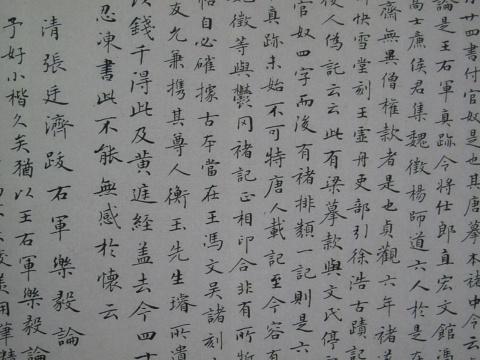 廿四書付官奴是也其唐摹本褚中令云
論是王右軍真跡令將仕郎直宏文館馮
高士廉侯君集魏徵楊師道六人於是在
齋無異僧權款者是也貞觀六年褚
快雪堂刻王靈丹更部引徐浩古蹟記
後人偽託云云此有梁摹款與文氏停
官奴四字而後有褚排類一記則是六
真跡未始不可特唐人載記至今容有
徵等與鬱岡褚記正相印合非有所
帖自必確據古本當在王馮文吳諸刻
友允兼携其尊人衡王先生璿所遺
錢千得此及黃庭經蓋去今四十
忍凍書此不能無感於懷云
清張廷濟跋右軍樂毅論
予好小楷久矣猶以王右軍樂毅論
用筆精